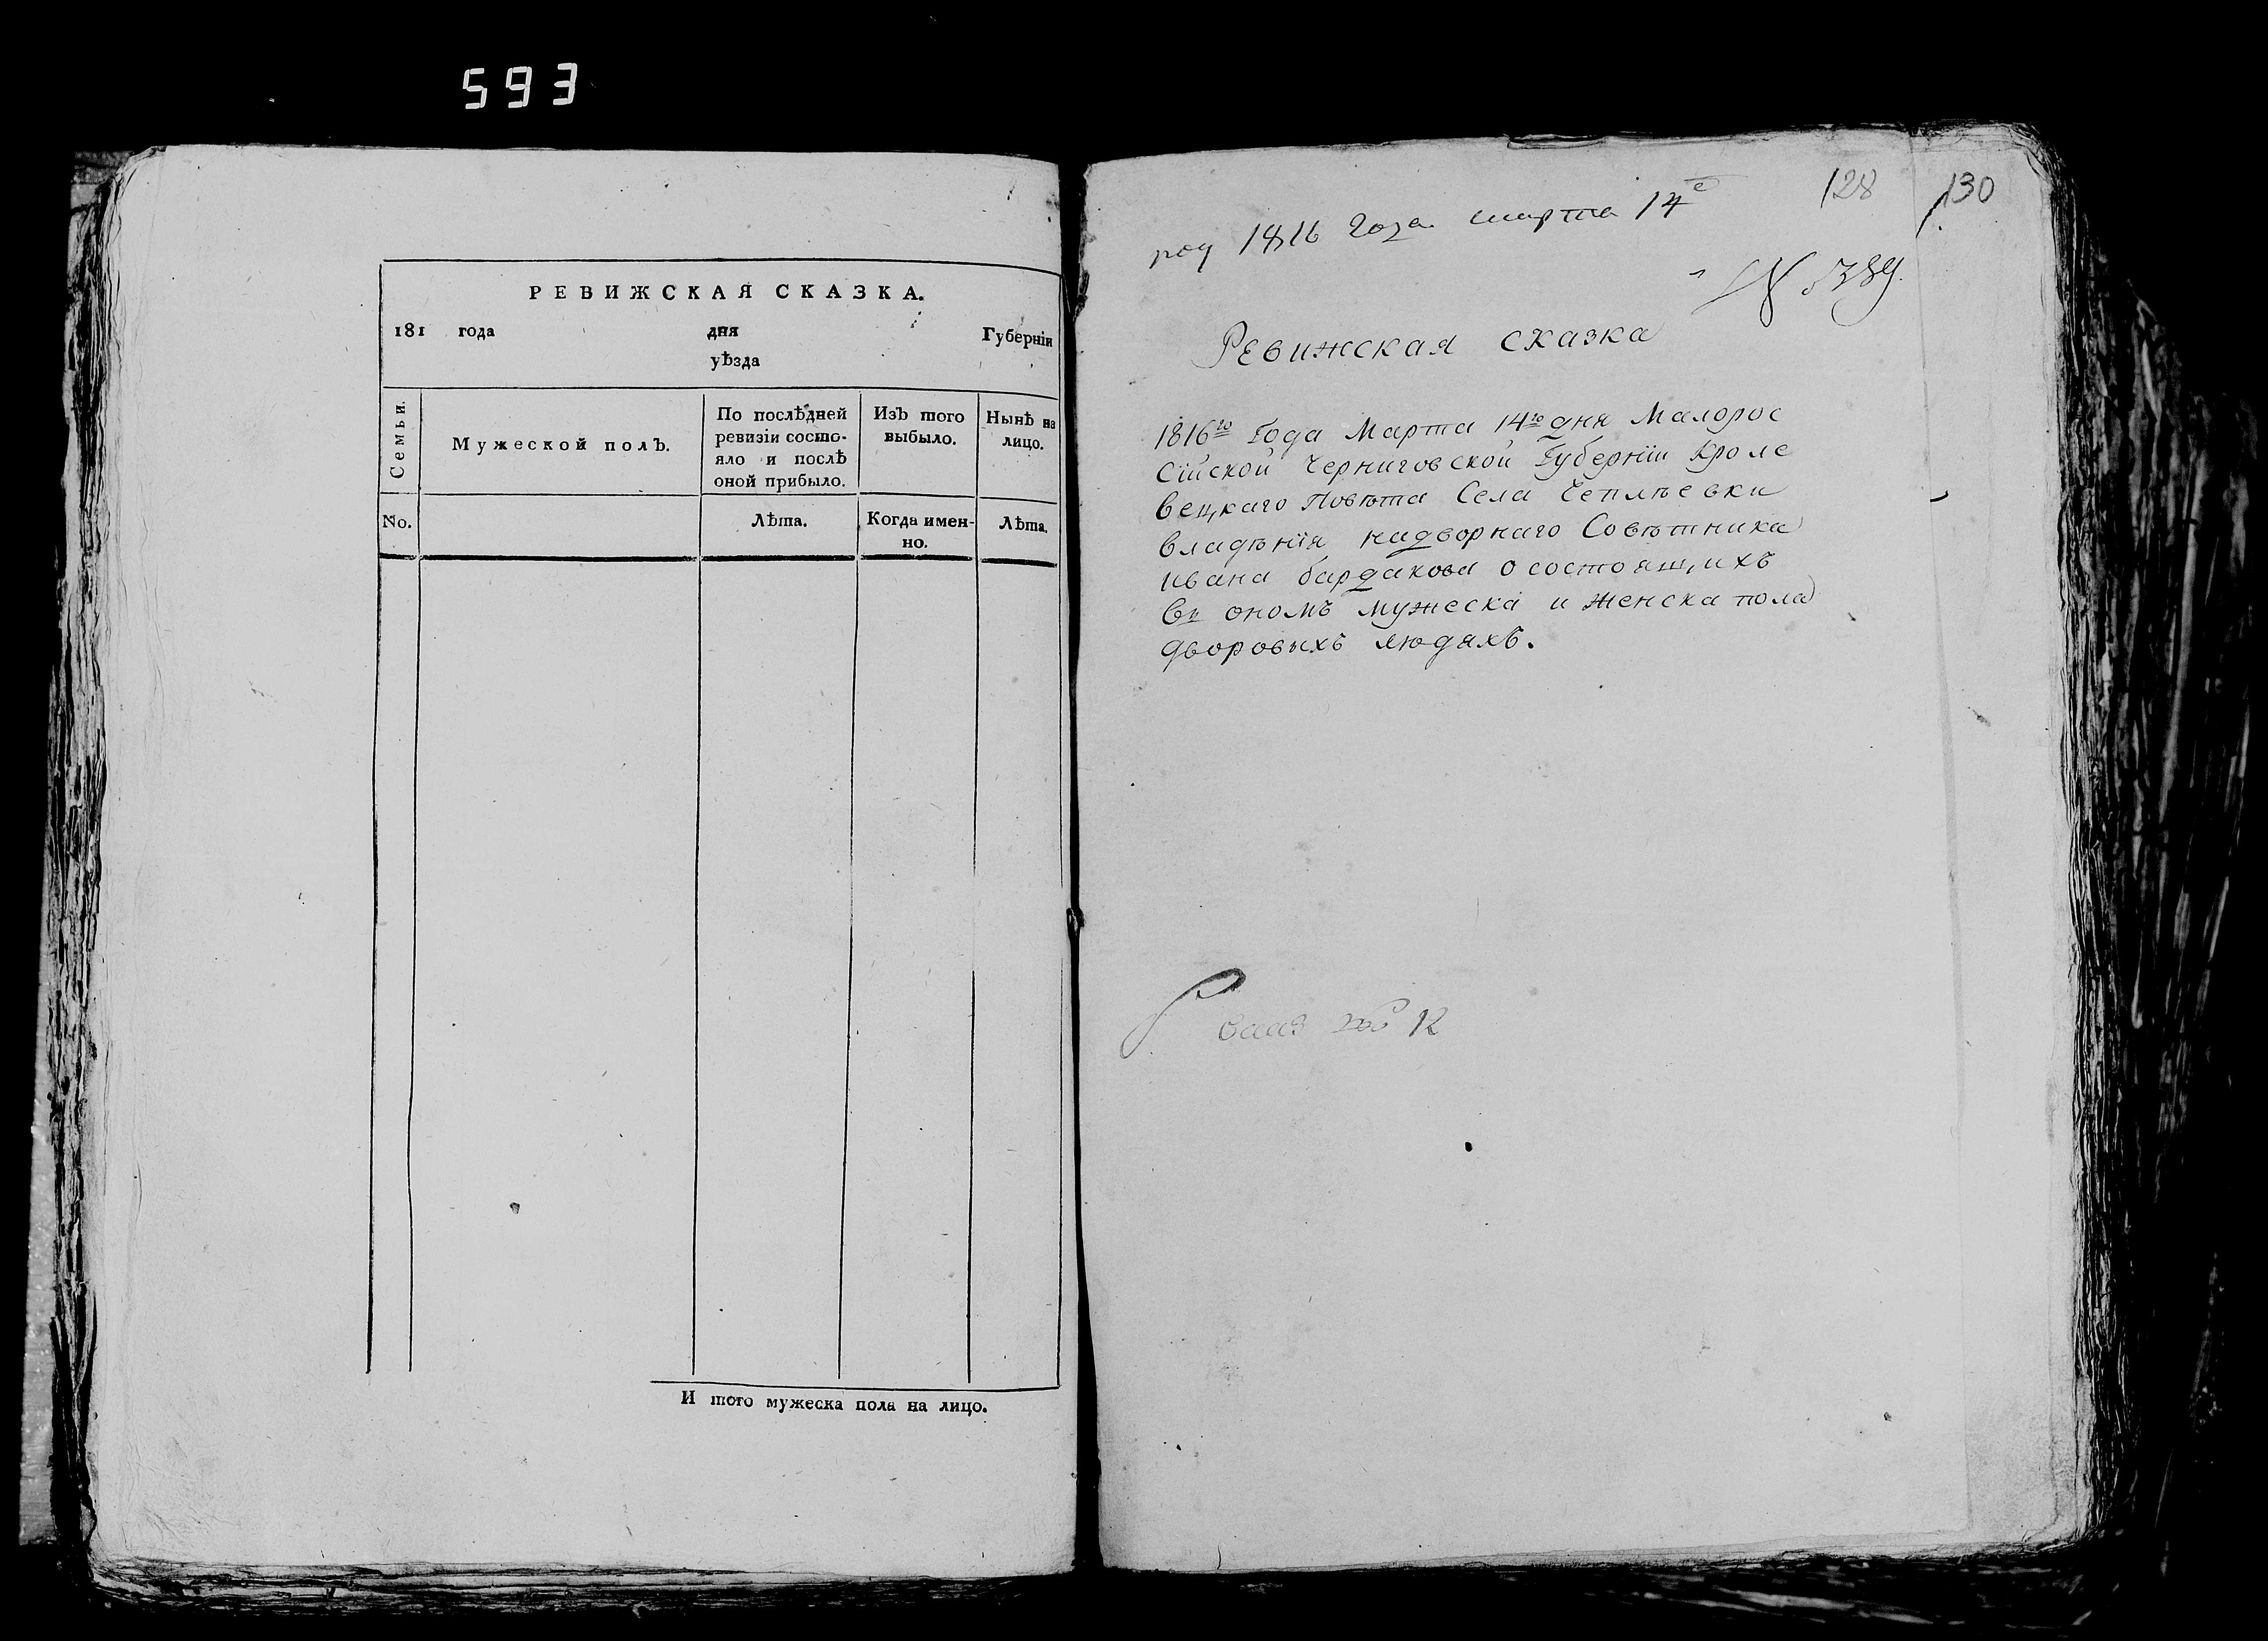 593
РЕВИЖСКАЯ СКАЗКА.
181 года дня Губерніи
уѣзда
Семьи.
Мужеской полъ.
По послѣдней
ревизіи состо-
яло и послѣ
оной прибыло.
Изъ того
выбыло.
Нынѣ на
лицо.
No.
Лѣта.
Когда имен-
но.
Лѣта.
И того мужеска пола на лицо.
128 130
1816 года марта 14е
№ 389.
Ревижская сказка
1816го Года Марта 14го дня Малорос
Сійской Черниговской Губерніи Кроле
вецкаго Повѣта Села Чеплѣевки
владѣнія надворнаго Совѣтника
ивана бардакова о состоящихъ
въ ономъ мужеска и женска пола
дворовыхъ людяхъ.
12